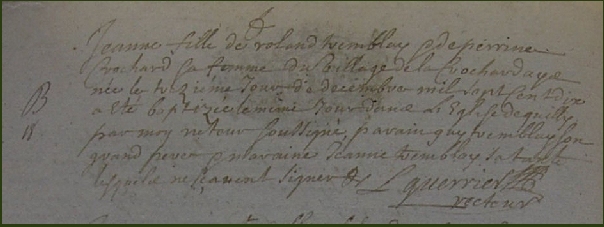 Jeanne fille de roland tremblay & de perrine
Crochard sa femme du village de la Crochardaye
née le jour de decembre mil sept cent dix
B a été baptezée le même jour dans l'Eglise de quilly
18 par moy recteur soussigné, parain guy tremblay son
grand pere & maraine Jeanne tremblay sa tante
lesquels ne sçavent signer &c L guerrier
recteur